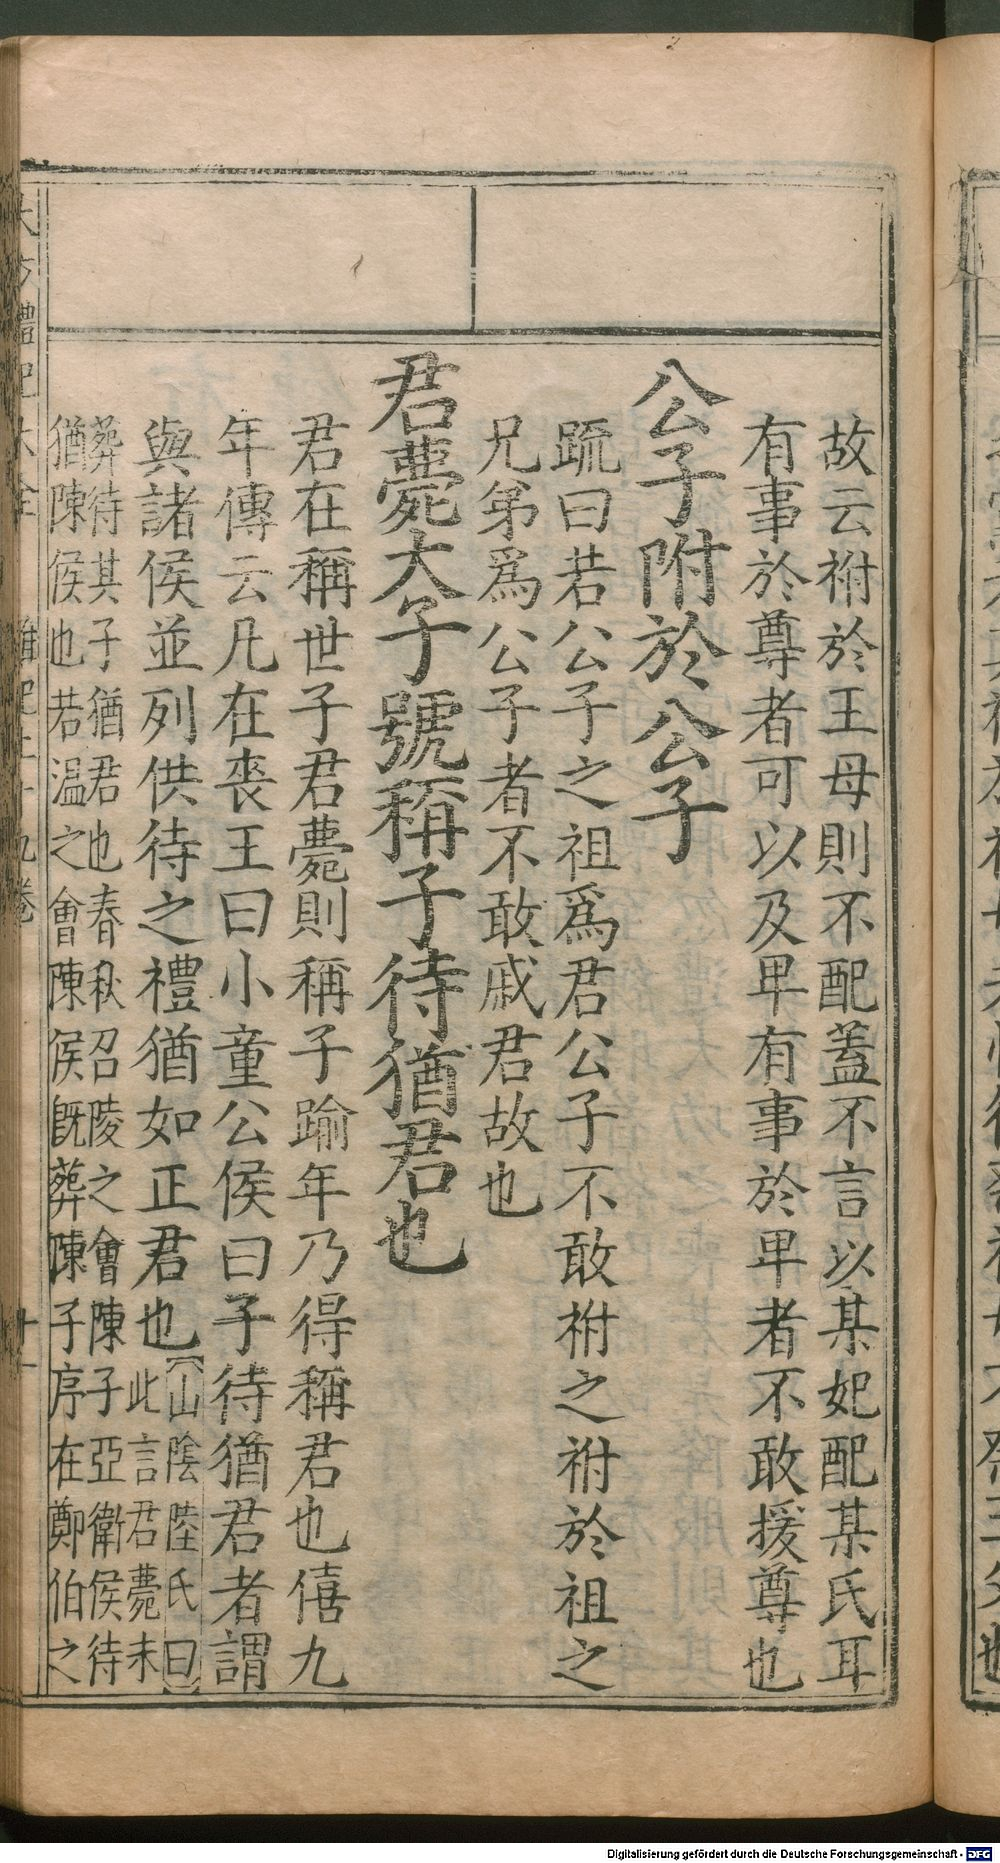 故云祔於王母則不配蓋不言以某妃配某氏耳
有事於尊者可以及卑有事於卑者不敢援尊也
公子附於公子
疏曰若公子之祖爲君公子不敢祔之祔於祖之
兄弟爲公子者不敢戚君故也
君薨大子號稱子待猶君也
君在稱世子君薨則稱子踰年乃得稱君也僖九
年傳云凡在喪王曰小童公侯曰子待猶君者謂
與諸侯並列供待之禮猶如正君也
山陰陸氏曰
此言君薨未
葬待其子猶君也春秋召陵之會陳子亞衛侯待
猶陳侯也若温之會陳侯既葬陳子序在鄭伯之
禮記大全
雜記二十九卷
十一
Digitalisierung gefördert durch die Deutsche Forschungsgemeinschaft - DFG